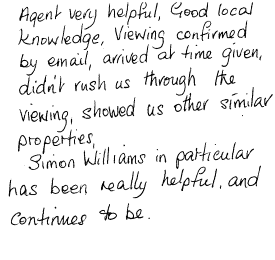 Agent very helpful, Good local
knowledge, Viewing confirmed
by email, arrived at time given,
didn't rush us through the
viewing, showed us other similar
properties,
Simon Williams in particular
has been really helpful, and
continues to be.